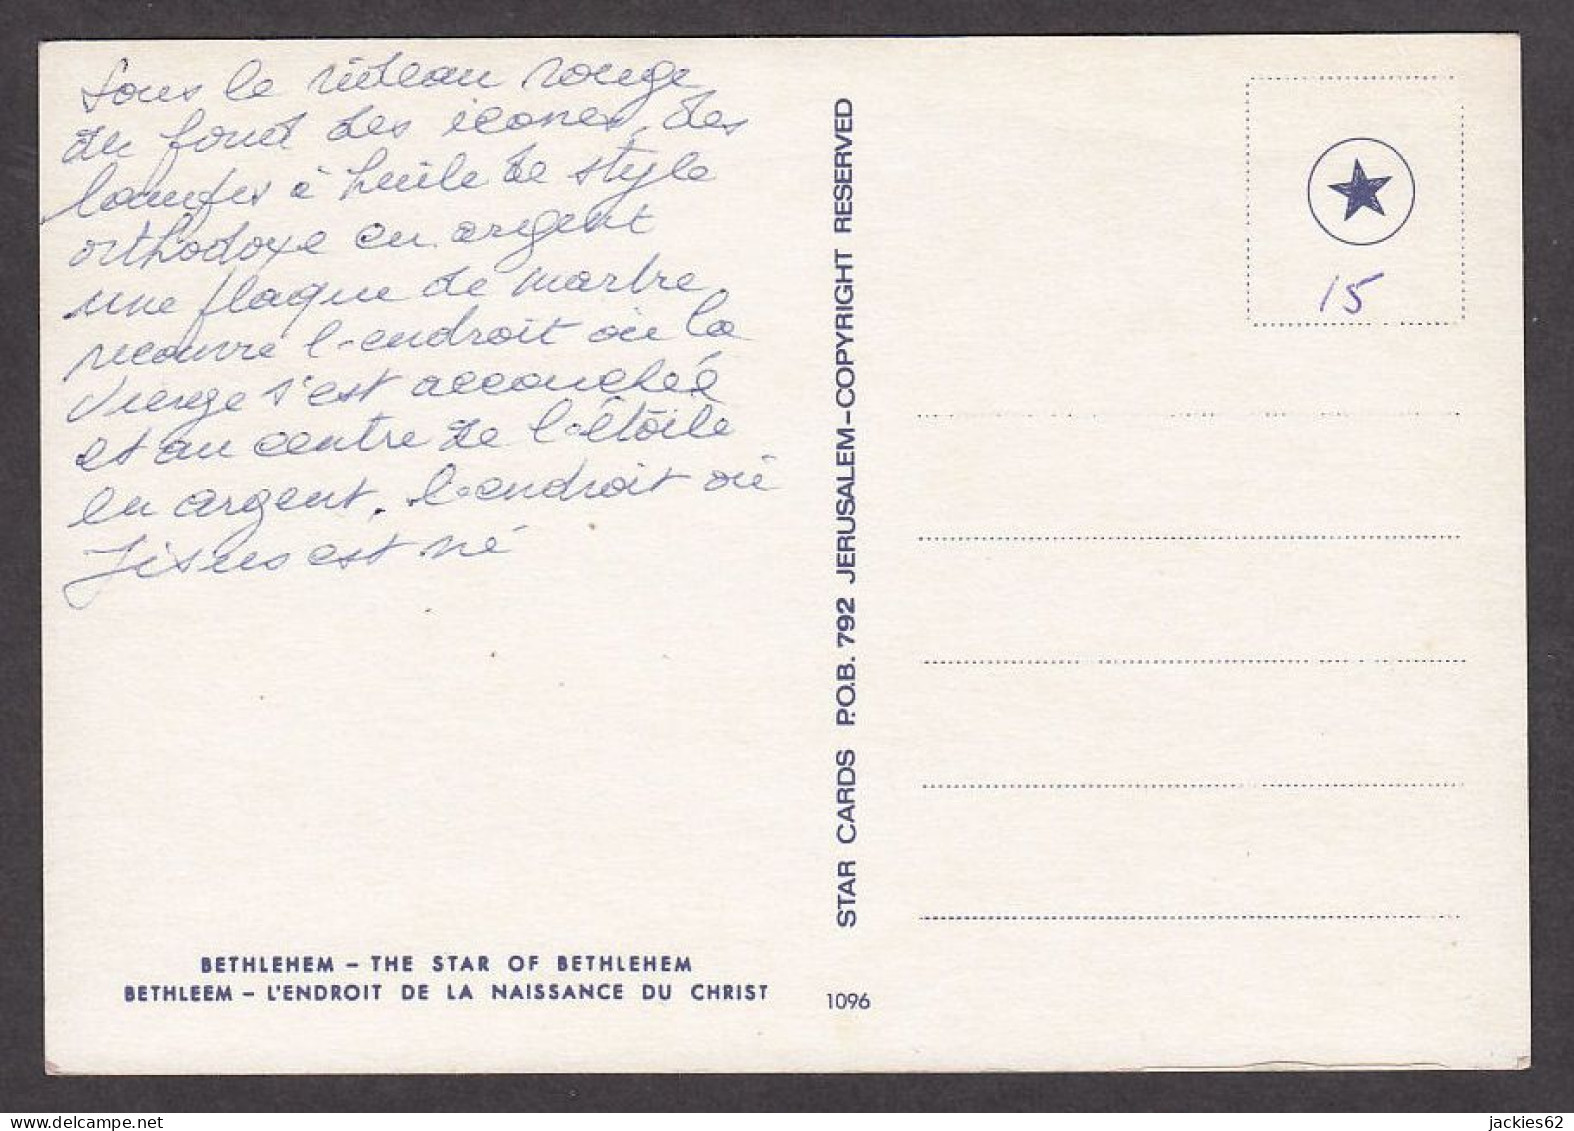 Sous le rideau rouge
du fond des icones, des
lampes à huile de style
orthodoxe en argent
une plaque de marbre
recouvre l'endroit où la
Vierge s'est accouchée
et au centre de l'étoile
en argent, l'endroit où
Jésus est né
BETHLEHEM – THE STAR OF BETHLEHEM
BETHLEEM – L'ENDROIT DE LA NAISSANCE DU CHRIST
1096
STAR CARDS P.O.B. 792 JERUSALEM–COPYRIGHT RESERVED
15
jackies62